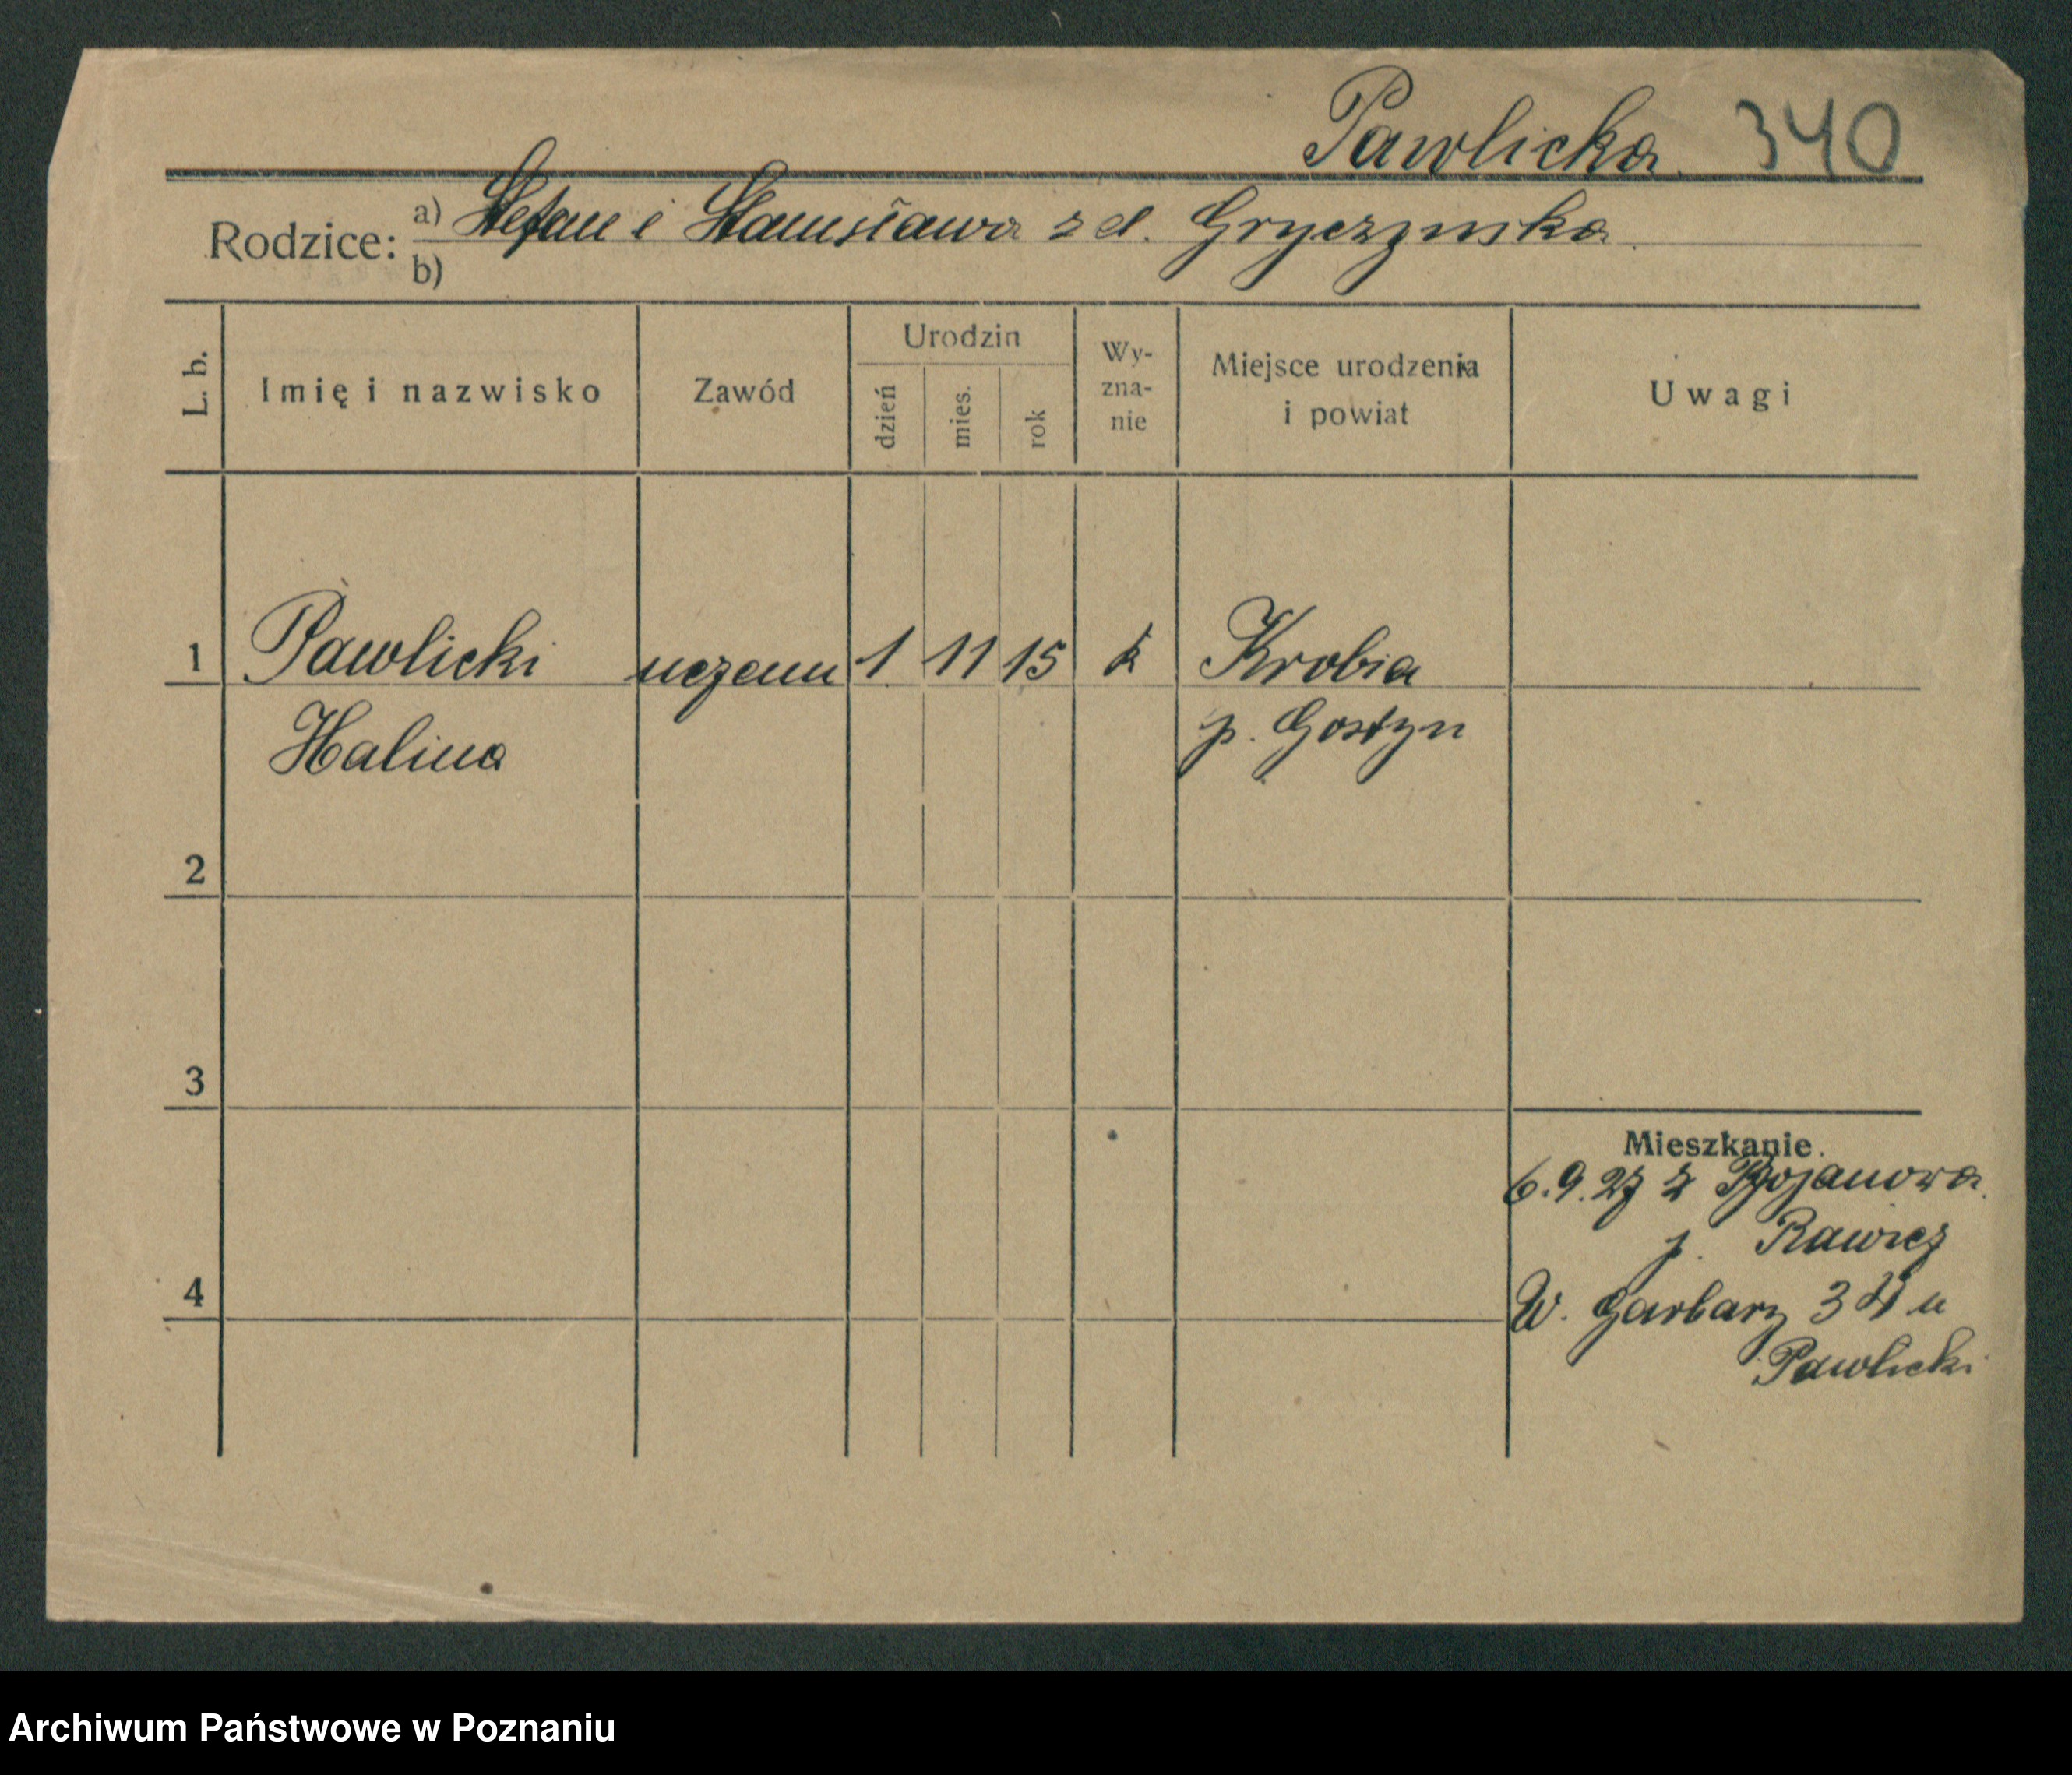 Pawlicka 340
Rodzice: a) Stefan i Stanisława z d. Gryczynska
b)
L. b.
Imię i nazwisko
Zawód
Urodzin
dzień
mies.
rok
Wy-
zna-
nie
Miejsce urodzenia
i powiat
Uwagi
1 Pawlicki uczenn 1 11 15 k Krobia
Halina p. Gostyn
2
3
4
Mieszkanie.
6.9.27 z Bojanowa
p. Rawicz
W. Garbary 34 u
Pawlicki
Archiwum Państwowe w Poznaniu